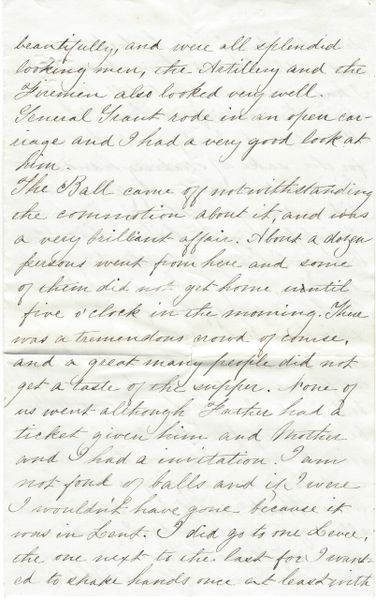 beautifully, and were all splendid
looking men, the Artillery and the
Firemen also looked very well.
General Grant rode in an open car-
riage and I had a very good look at
him.
The Ball came off notwithstanding
the commotion about it, and was
a very brilliant affair. About a dozen
persons went from here and some
of them did not get home until
five o'clock in the morning. There
was a tremendous crowd of course,
and a great many people did not
get a taste of the supper. None of
us went although Father had a
ticket given him and Mother
and I had a invitation. I am
not fond of balls and if I were
I wouldn't have gone because it
was in Lent. I did go to one Levee,
the one next to the last for I want-
ed to shake hands once at least with